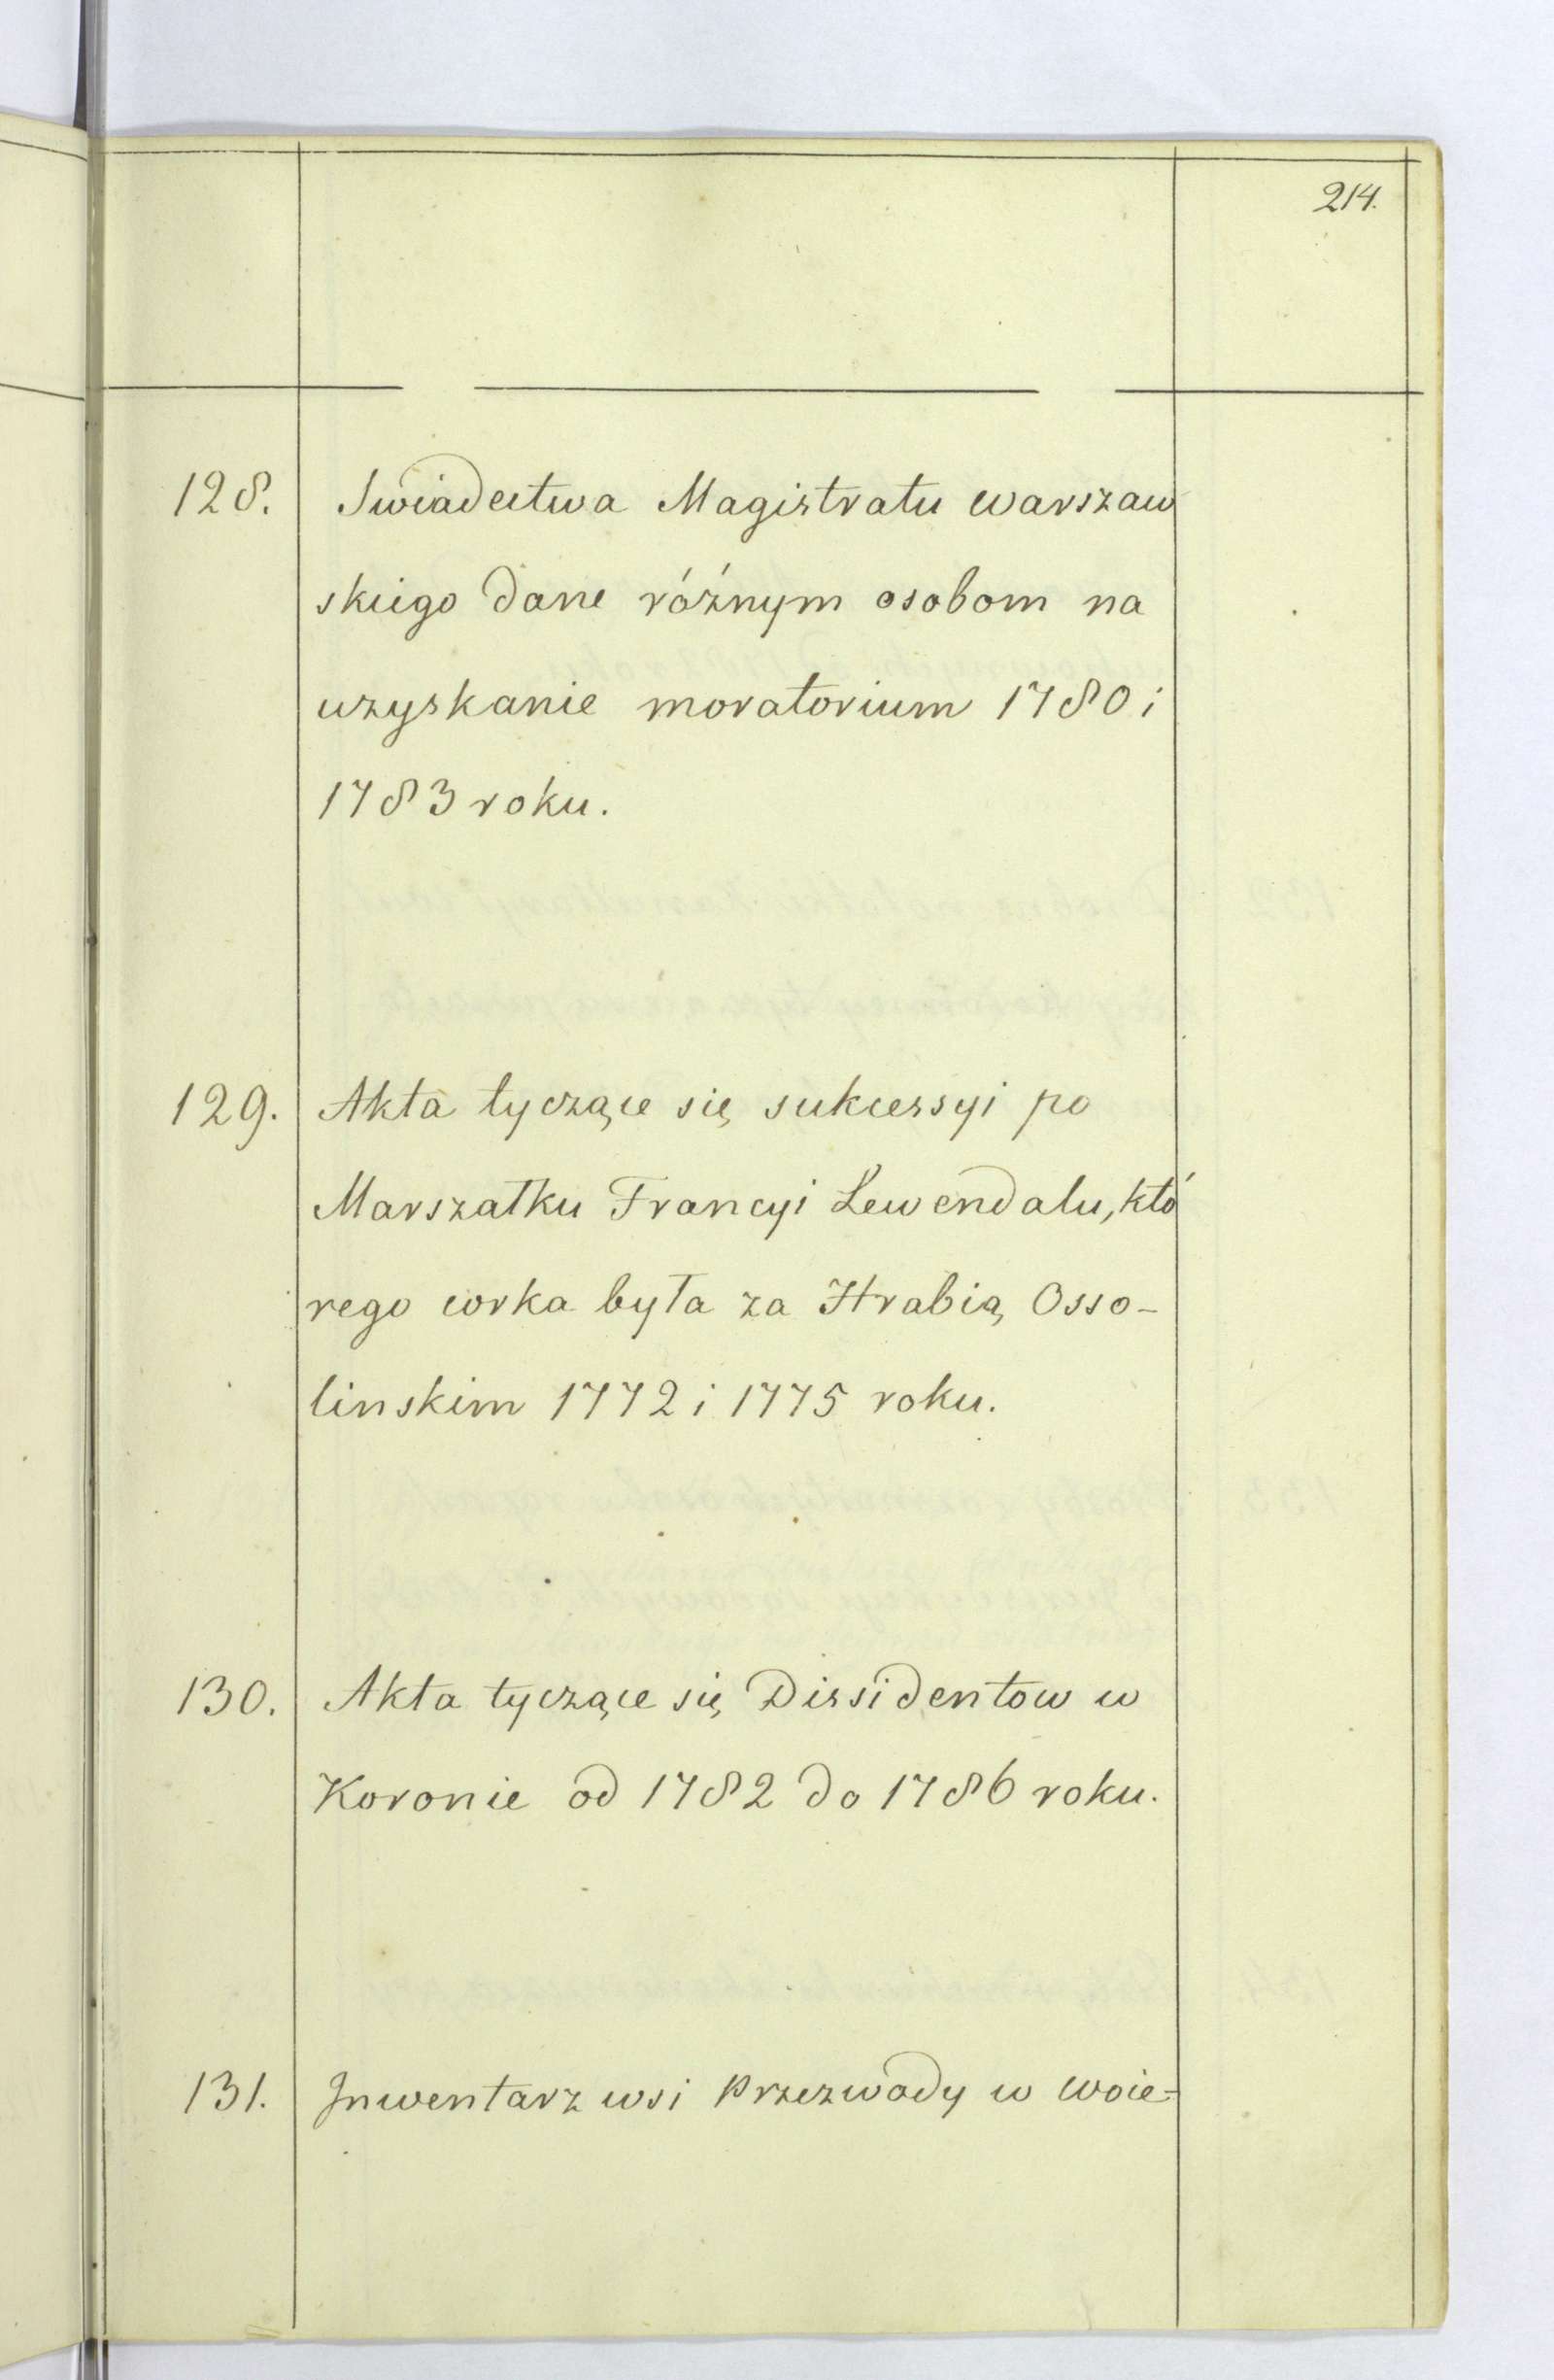 214.
128. Swiadectwa Magistratu warszaw
skiego dane różnym osobom na
uzyskanie moratorium 1780 i
1783 roku.
129. Akta tyczące się sukcessyi po
Marszałku Francyi Lewendalu, któ
rego corka była za Hrabią Osso-
linskim 1772 i 1775 roku.
130. Akta tyczące się Dissidentow w
Koronie od 1782 do 1786 roku.
131. Inwentarz wsi Przezwody w Woie=